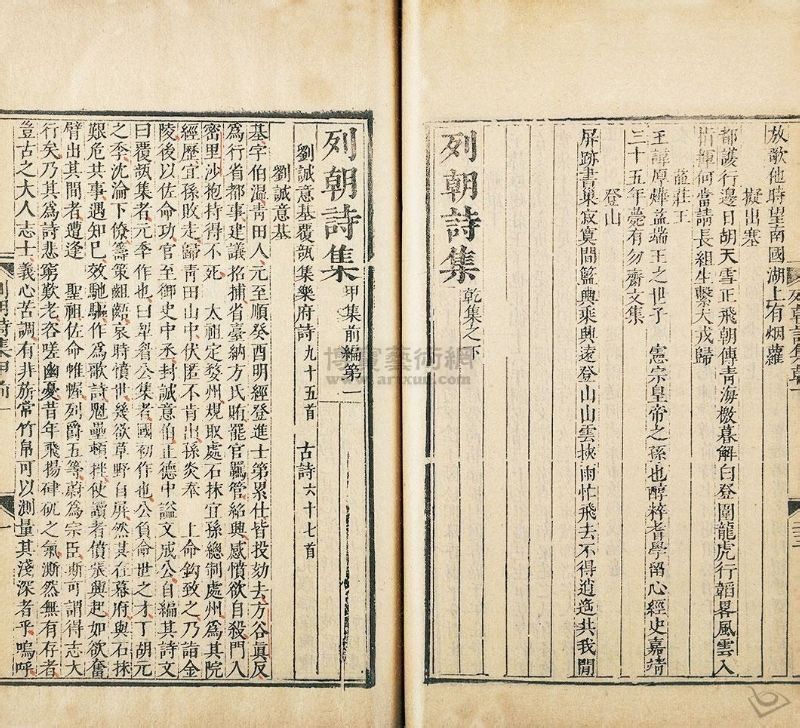 放歌他時望南國湖上有烟蘿
擬出塞
都護行邊日胡天雪正飛朝傳青海檄暮解白登圍龍虎行韜畧風雲入
指揮何當請長組生繫犬戎歸
莊王
王諱厚燁益端王之世子 憲宗皇帝之孫也醇粹耆學留心經史嘉靖
三十五年薨有勿齋文集
登山
屏跡書巢寂寞間籃輿乘興遠登山山雲挾雨忙飛去不得逍遙共我閒
列朝詩集 乾集之下
列朝詩集乾
列朝詩集 甲集前編第一
劉誠意基覆瓿集樂府詩九十五首 古詩六十七首
劉誠意基
基字伯温青田人元至順癸酉明經登進士第累仕皆投劾去方谷眞反
爲行省都事建議掐捕省臺納方氏賄罷官羈管紹興感憤欲自殺門人
密里沙抱持得不死 太祖定婺州規取處石抹宜孫總制處州爲其院
經歷宜孫敗走歸青田山中伏匿不肯出孫炎奉 上命鈎致之乃詣金
陵後以佐命功官至御史中丞封誠意伯正德中謚文成公自編其詩文
曰覆瓿集者元季作也曰犁眉公集者國初作也公負命世之才丁胡元
之季沈淪下僚籌策齟齬哀時憤世幾欲草野自屏然其在幕府與石抹
艱危共事遇知已效馳驅作爲歌詩魁壘頓挫使讀者僨張興起如欲奮
臂出其間者遭逢 聖祖佐命帷幄列爵五等蔚爲宗臣斯可謂得志大
行矣乃其爲詩悲窮歎老咨嗟幽憂昔年飛揚硉矹之氣澌然無有存者
豈古之大人志士義心苦調有非旂常竹帛可以測量其淺深者乎嗚呼
列朝詩集甲前一
一
博寶藝術網
www.artxun.com